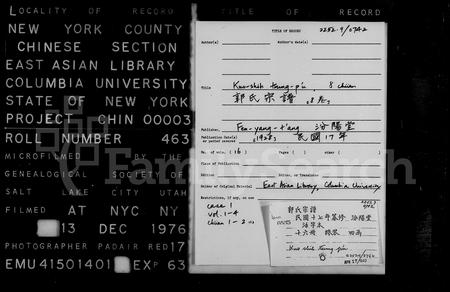 LOCALITY OF RECORD
TITLE OF RECORD
NEW YORK COUNTY
CHINESE SECTION
EAST ASIAN LIBRARY
COLUMBIA UNIVERSITY
STATE OF NEW YORK
PROJECT CHIN 00003
ROLL NUMBER 463
MICROFILMED BY THE
GENEALOGICAL SOCIETY OF
SALT LAKE CITY UTAH
FILMED AT NYC NY
13 DEC 1976
PHOTOGRAPHER PADAIR RED 17
EMU41501401 EXP 63
TITLE OF RECORD
2252.9/0742
Author(s)
Author's date(s)
Title
Kuo-shih tsung-p'u, 8 chüan
郭氏宗譜, 8卷
Publisher
Fen-yang-t'ang 汾陽堂
Publication Date(s) or period covered
1928, 民國17年
No. of vols. (16)
Pages ( )
Place of Publication
Edition
Owner of Original Material East Asian Library, Columbia University
Restrictions, if any, on use
case 1
vol. 1-4
chüan 1-2
郭氏宗譜
民國十七年篡修 汾陽堂
活字本
十六冊
Kuo shih tsung p'u
FamilySearch